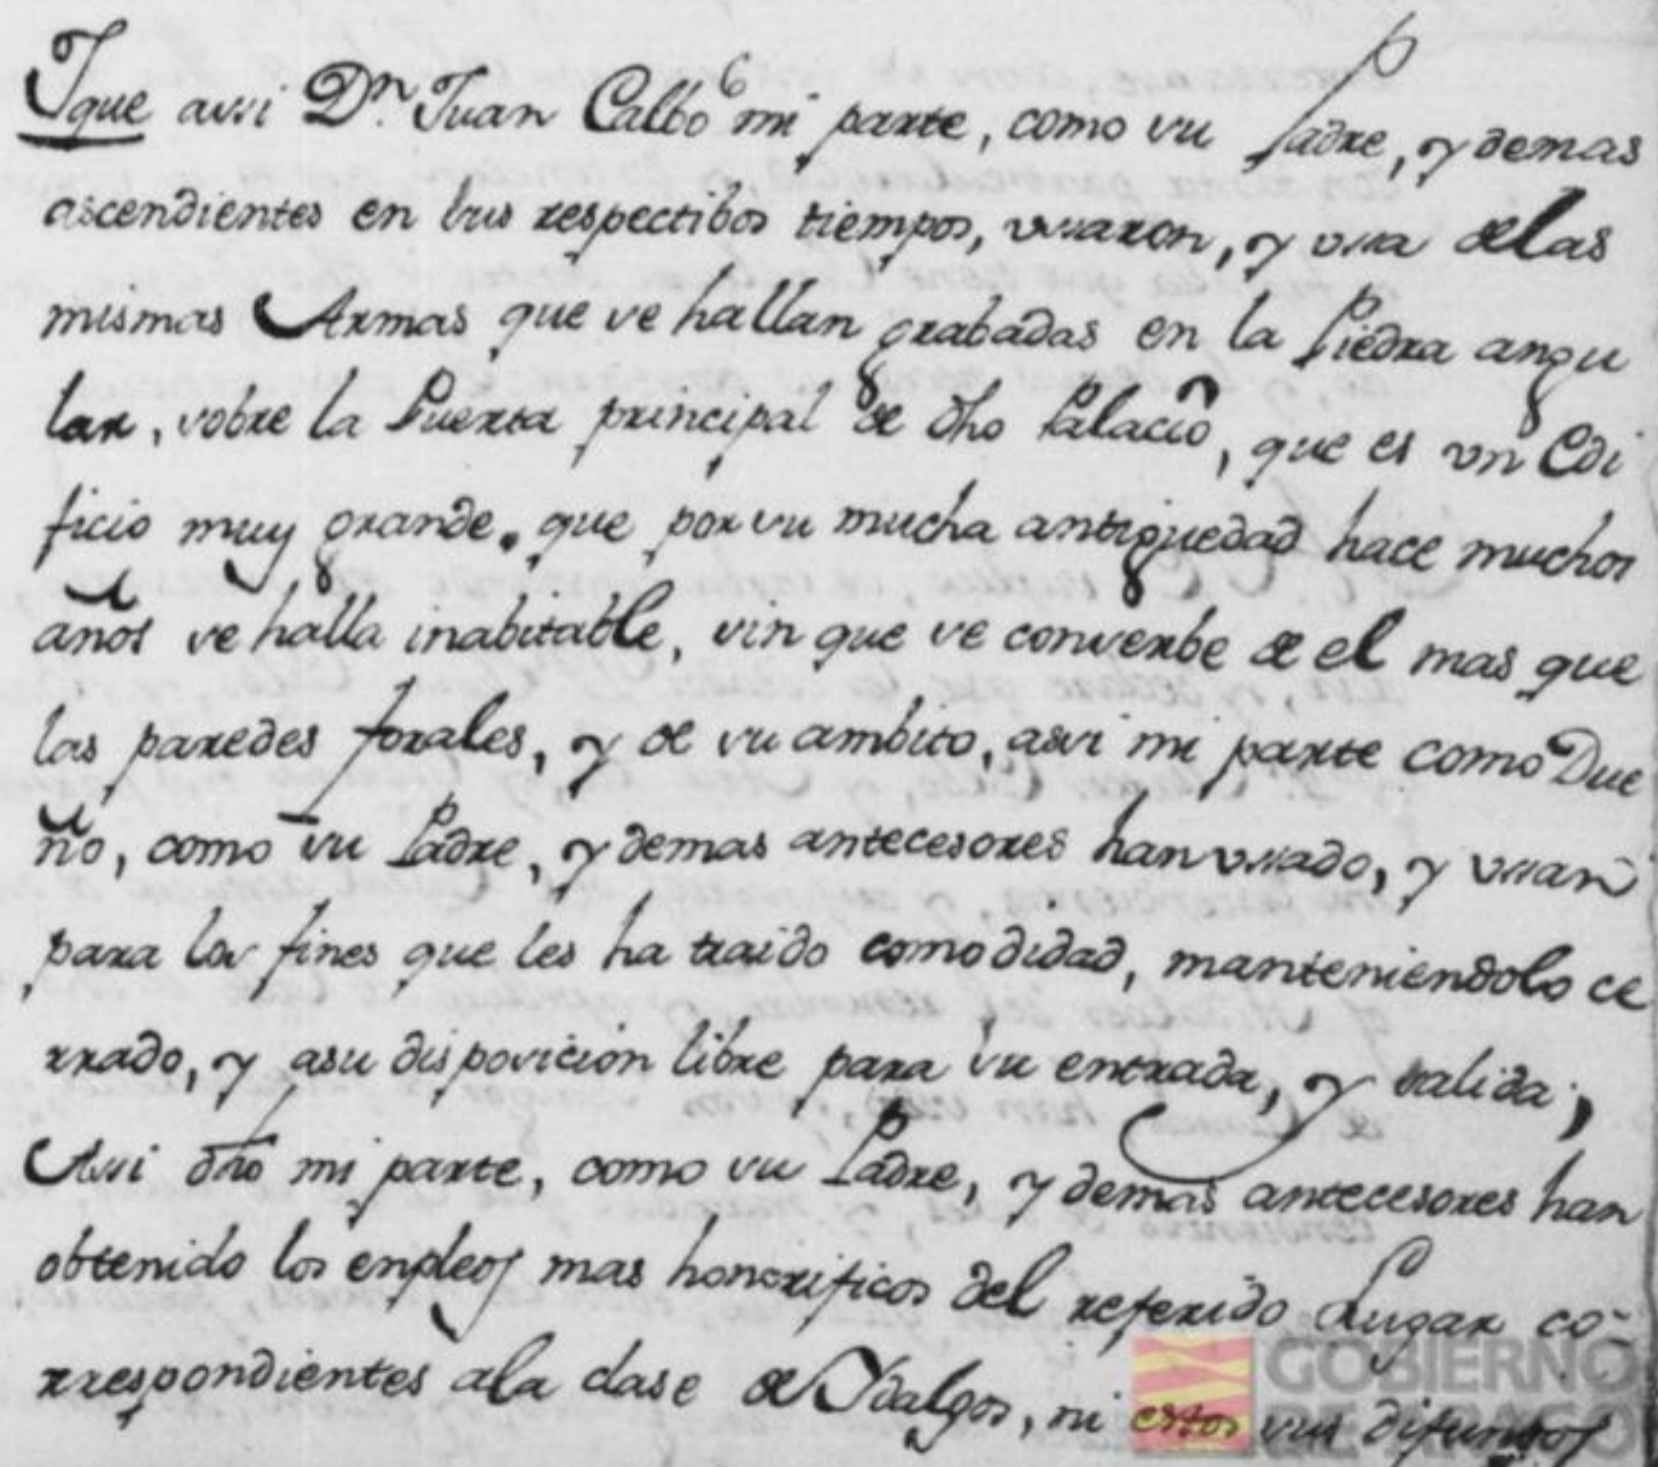 Yque assi Dn. Juan Calbo mi parte, como su Padre, y demas
ascendientes en sus respectibos tiempos, usaron, y usa delas
mismas Armas que se hallan grabadas en la Piedra angu
lar, sobre la Puerta principal de dho Palacio, que es un Edi
ficio muy grande, que por su mucha antiguedad hace muchos
años se halla inabitable, sin que se conserbe de el mas que
las paredes forales, y de su ambito, assi mi parte como Due
ño, como su Padre, y demas antecesores han usado, y usan
para los fines que les ha traido comodidad, manteniendolo ce
rrado, y asu disposicion libre para su entrada, y salida;
Assi dho mi parte, como su Padre, y demas antecesores han
obtenido los enpleos mas honorificos del referido Lugar co-
rrespondientes ala clase de Ydalgos, ni estos sus difuntos
GOBIERNO
DE ARAGON